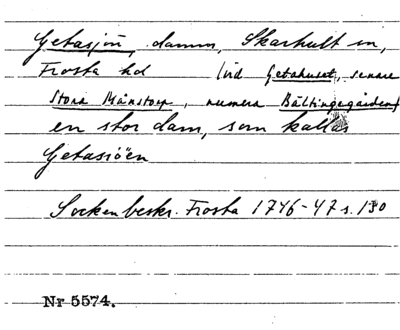 Getasjön, damm, Skarhult sn,
Frosta hd (vid Getahuset, senare
Stora Månstorp, numera Bältingegården)
en stor dam, som kallas
Getasiöen
Sockenbeskr. Frosta 1746-47 s. 130
Nr 5574.